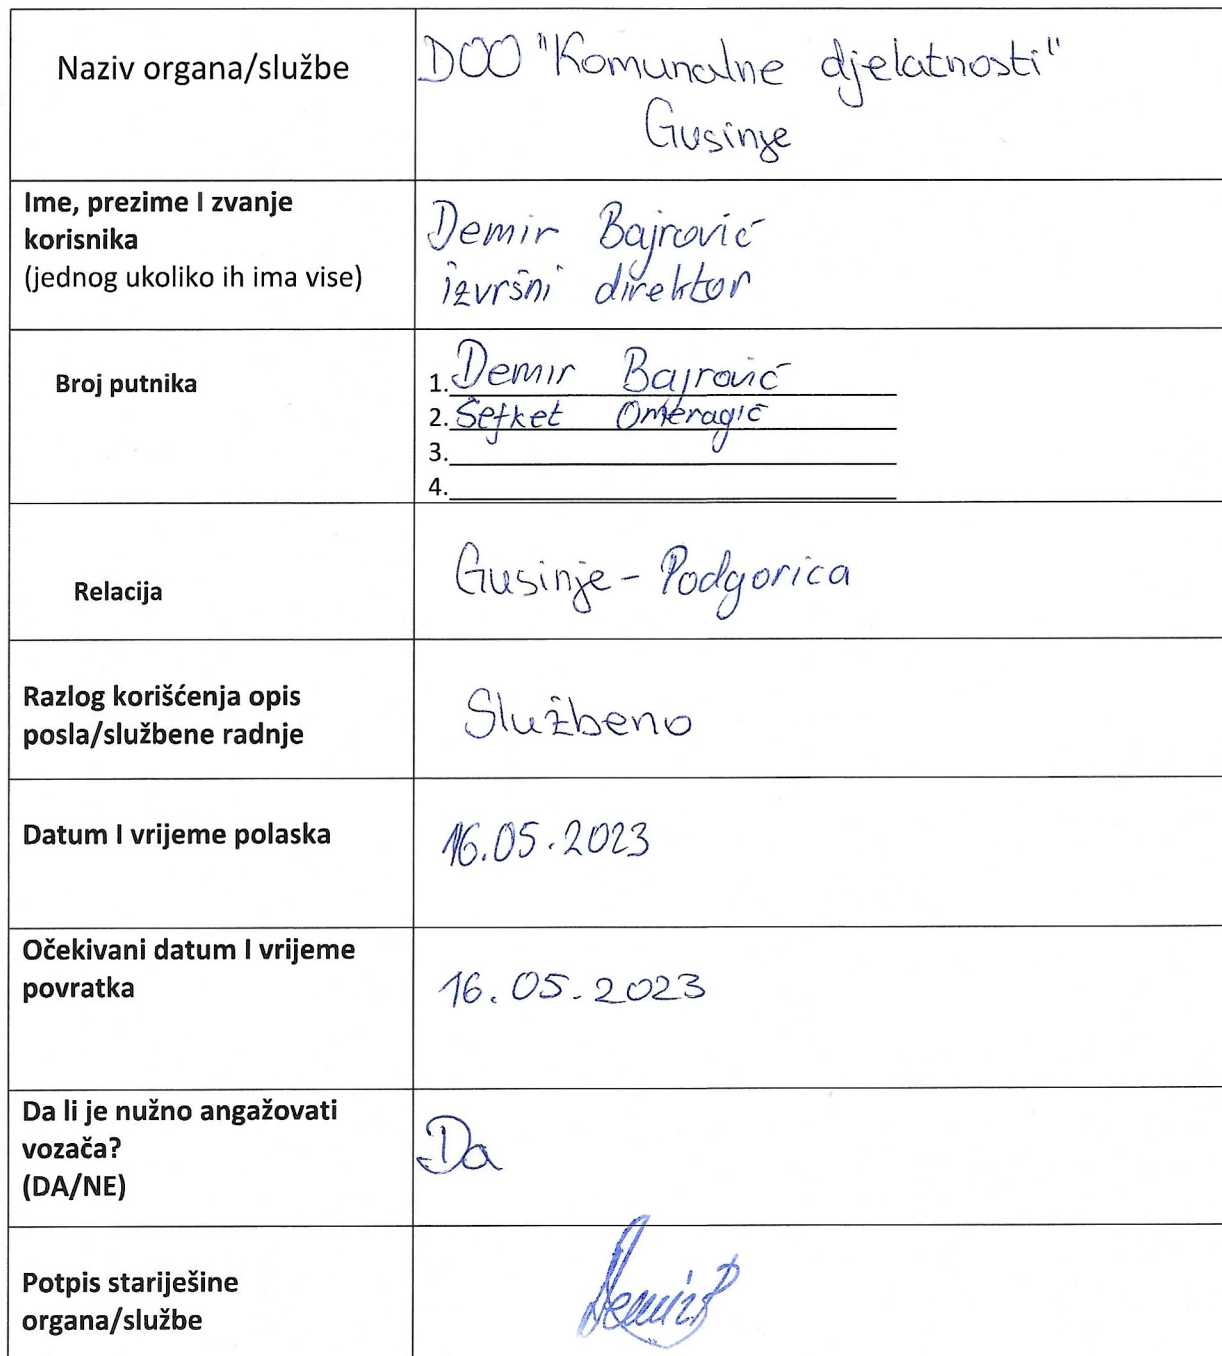 Naziv organa/službe
DOO "Komunalne djelatnosti"
Gusinje
Ime, prezime I zvanje
korisnika
(jednog ukoliko ih ima vise)
Demir Bajrović
izvršni direktor
Broj putnika
1. Demir Bajrović
2. Šefket Omeragić
3.
4.
Relacija
Gusinje - Podgorica
Razlog korišćenja opis
posla/službene radnje
Službeno
Datum I vrijeme polaska
16.05.2023
Očekivani datum I vrijeme
povratka
16.05.2023
Da li je nužno angažovati
vozača?
(DA/NE)
Da
Potpis starješine
organa/službe